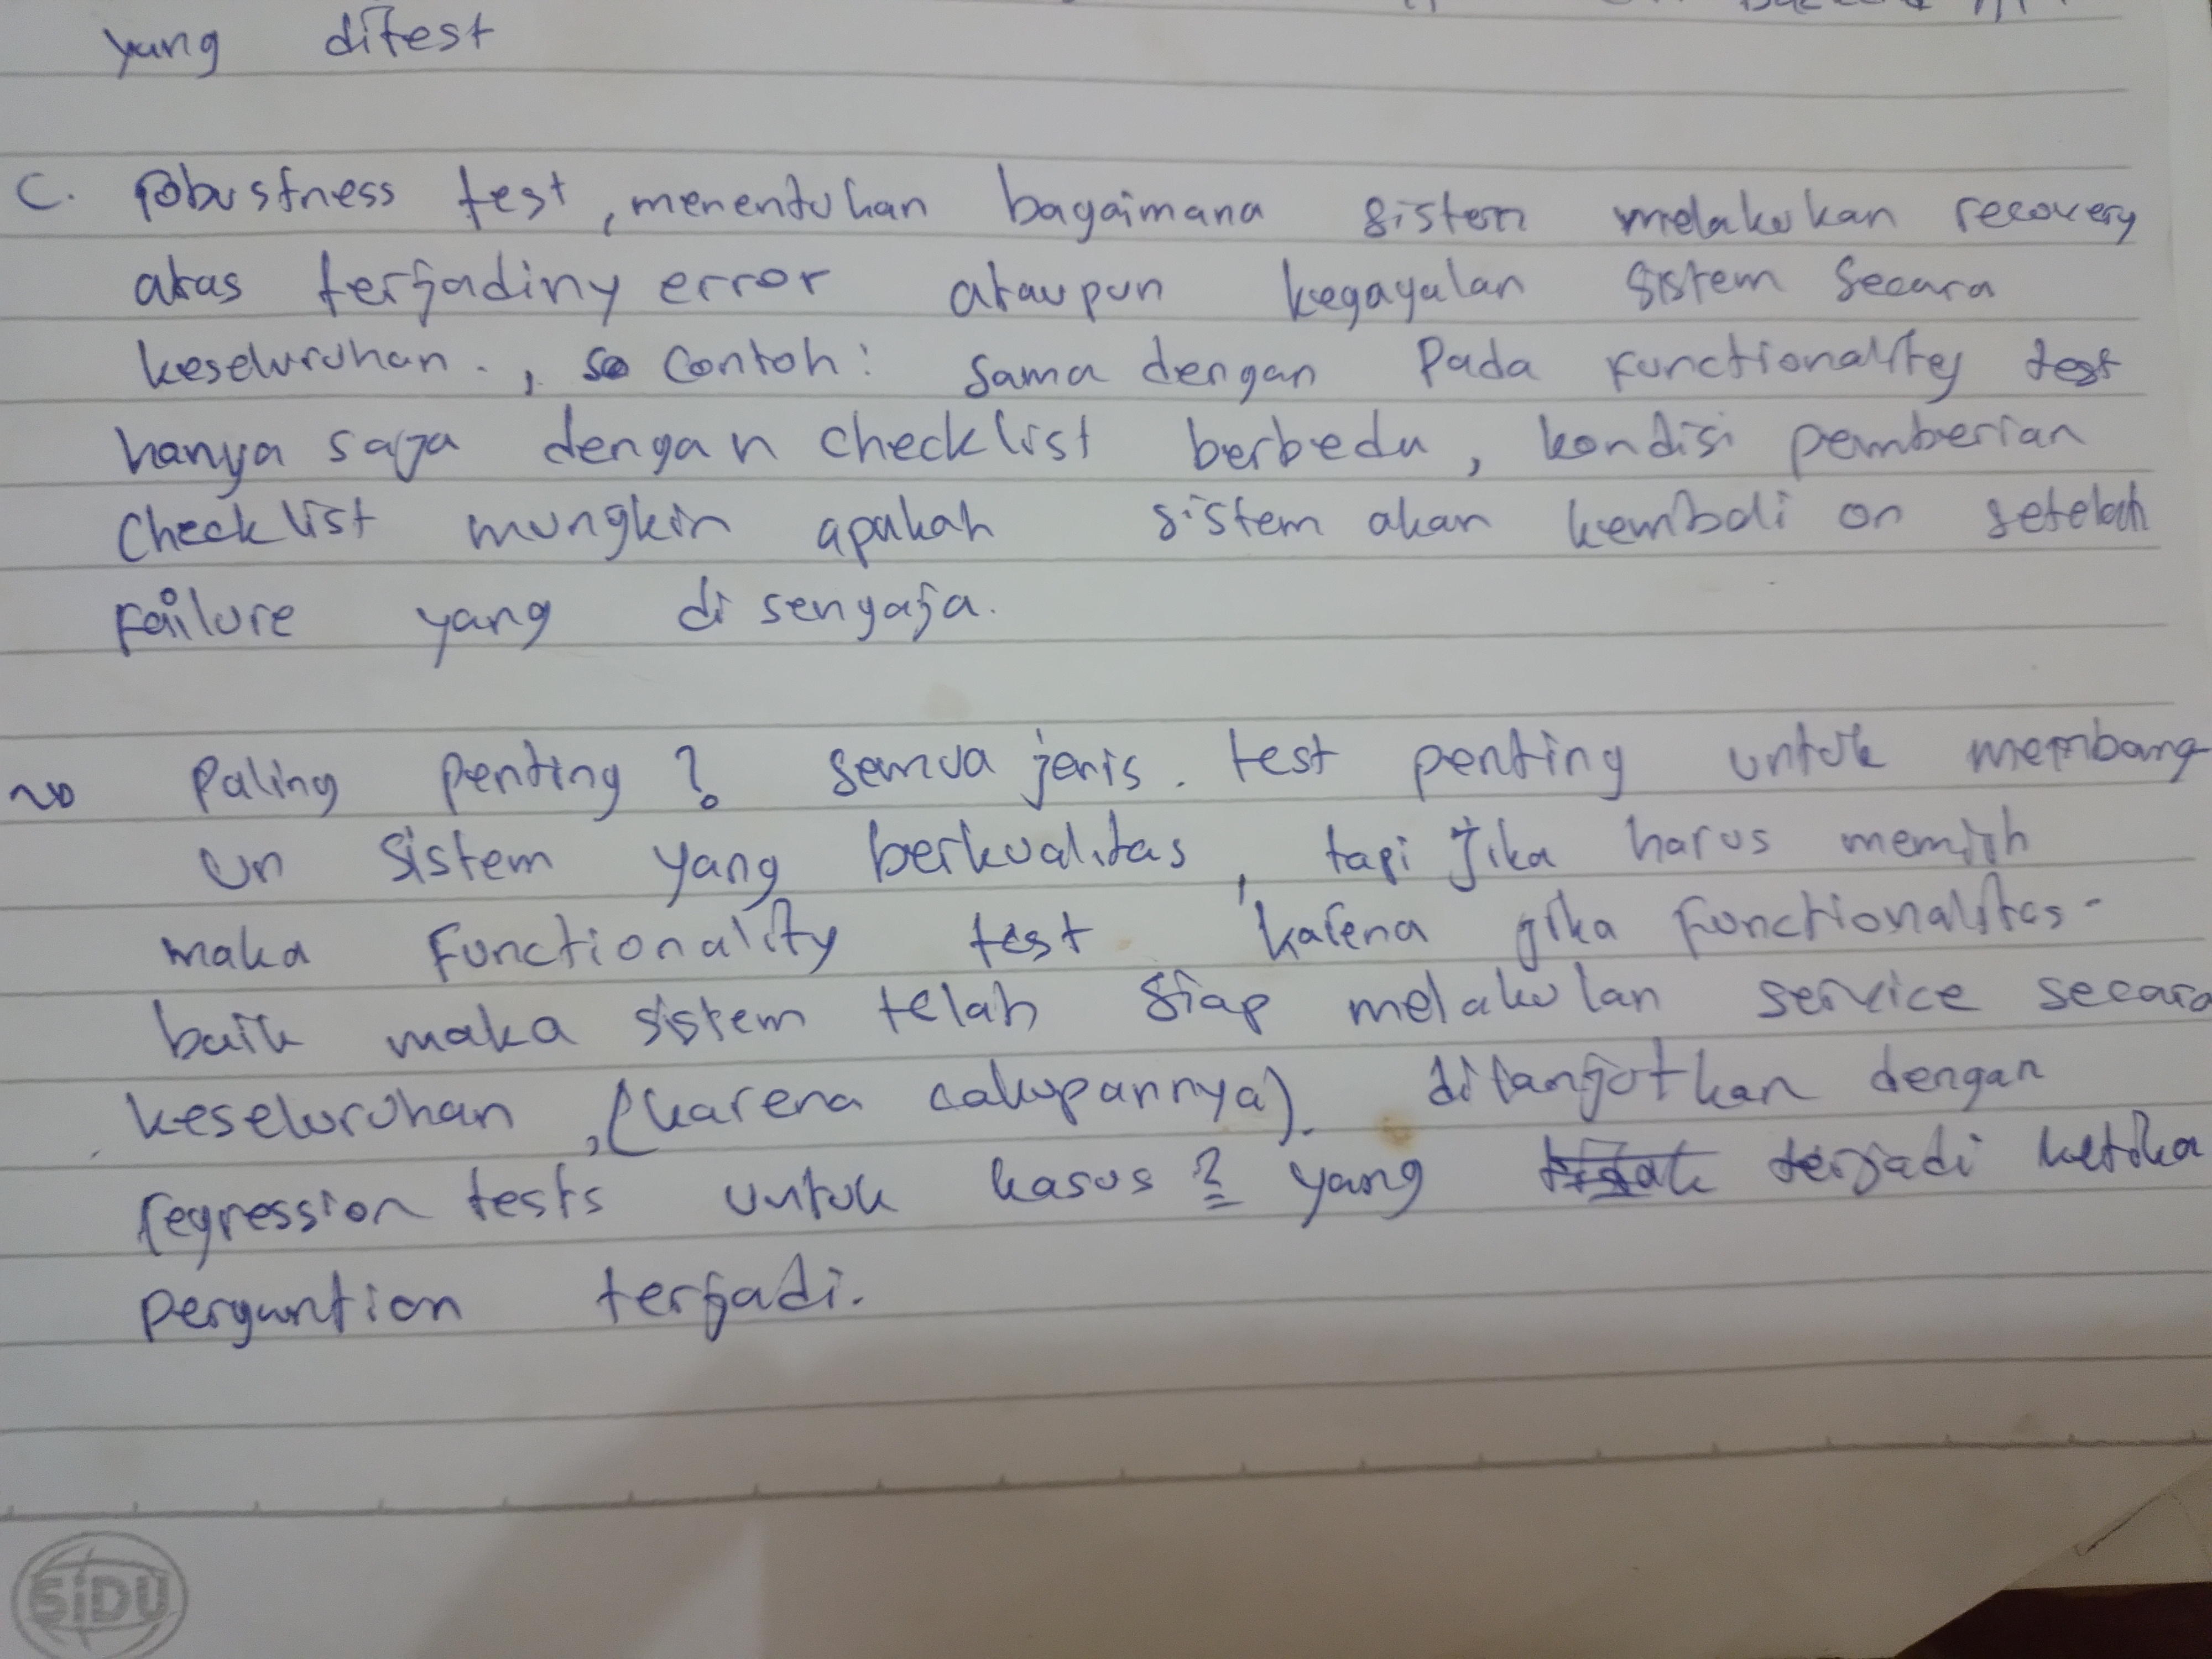 yang ditest
C. Robustness test, menentukan bagaimana sistem melakukan recovery
atas terjadiny error ataupun kegagalan sistem secara
keseluruhan., Contoh: sama dengan pada functionality test
hanya saja dengan checklist berbeda, kondisi pemberian
checklist mungkin apakah sistem akan kembali on setelah
failure yang disengaja.
Paling penting? semua jenis. test penting untuk membang
un sistem yang berkualitas, tapi jika harus memilih
maka functionality test karena jika functionalitas-
baik maka sistem telah siap melakukan service secara
keseluruhan, (karena cakupannya). dilanjutkan dengan
regression tests untuk kasus 2 yang terjadi ketika
pergantian terjadi.
SiDU